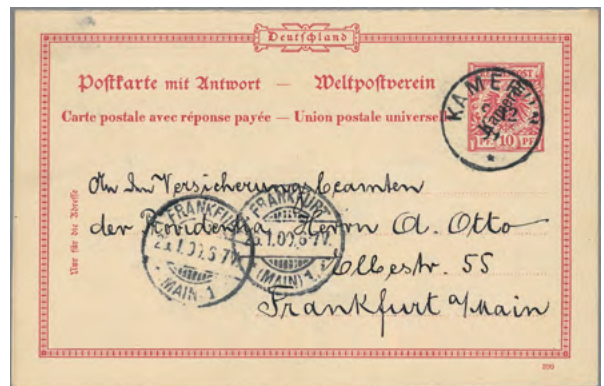 Deutschland
Postkarte mit Antwort — Weltpostverein
Carte postale avec réponse payée — Union postale universelle
KAMERUN
12
Kamerun
10 PF
Nur für die Adresse
An den Versicherungsbeamten
der Providentia Herrn A. Otto
Elbestr. 55
Frankfurt a/Main
FRANKFURT
(MAIN) 1
FRANKFURT
(MAIN) 1